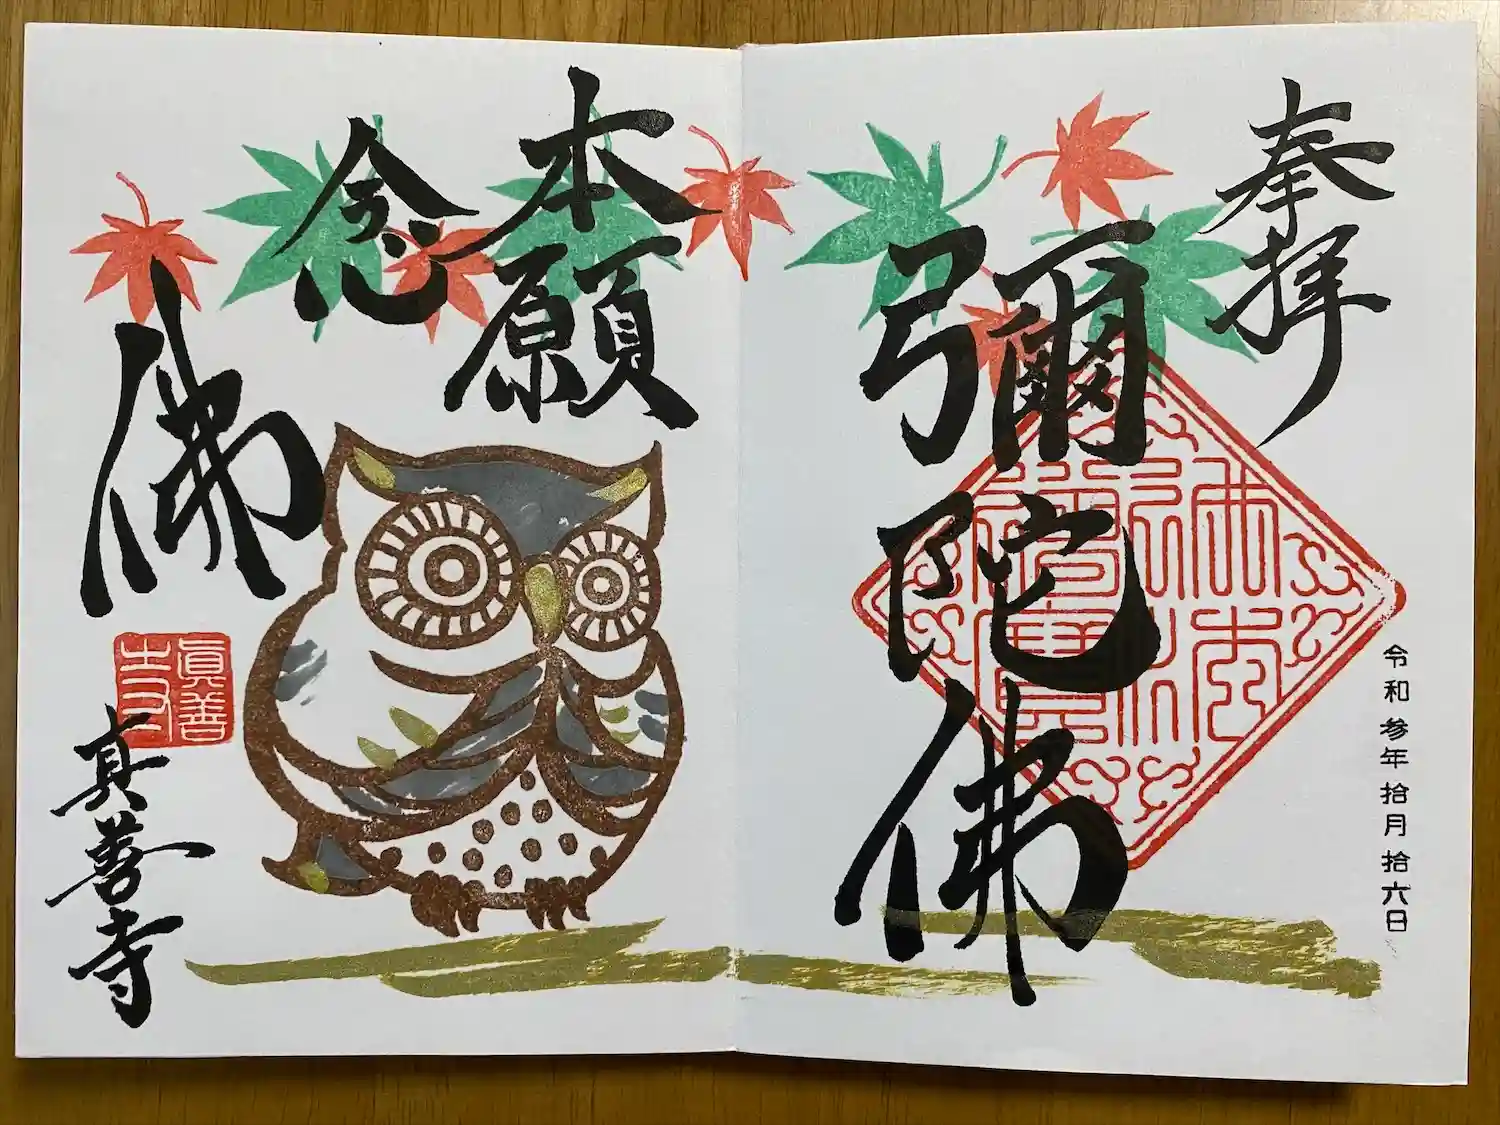 奉拝
彌陀佛
令和参年拾月拾六日
本願
念佛
眞善寺
真善寺